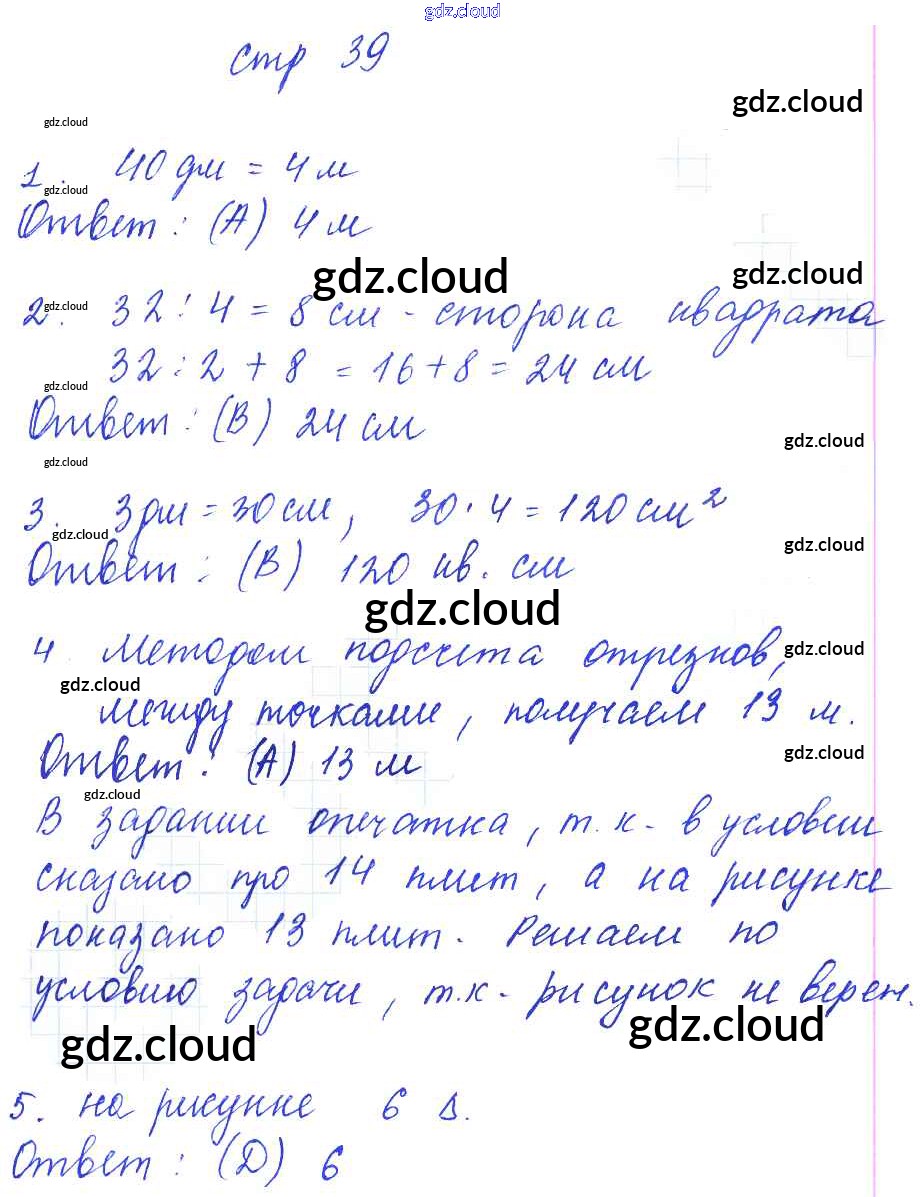 gdz.cloud
стр 39
gdz.cloud
gdz.cloud
1. 40 дм = 4 м
gdz.cloud
Ответ: (А) 4 м
gdz.cloud
gdz.cloud
2. 32 : 4 = 8 см - сторона квадрата
gdz.cloud
32 : 2 + 8 = 16 + 8 = 24 см
gdz.cloud
Ответ: (В) 24 см
gdz.cloud
gdz.cloud
3. 3 дм = 30 см, 30 · 4 = 120 см²
gdz.cloud
gdz.cloud
Ответ: (В) 120 кв. см
gdz.cloud
4 Методом подсчета отрезков,
gdz.cloud
gdz.cloud
между точками, получаем 13 м.
Ответ: (А) 13 м
gdz.cloud
gdz.cloud
В задании опечатка, т.к. в условии
сказано про 14 плит, а на рисунке
показано 13 плит. Решаем по
условию задачи, т.к. рисунок не верен.
gdz.cloud
gdz.cloud
5. на рисунке 6 Δ.
Ответ: (D) 6